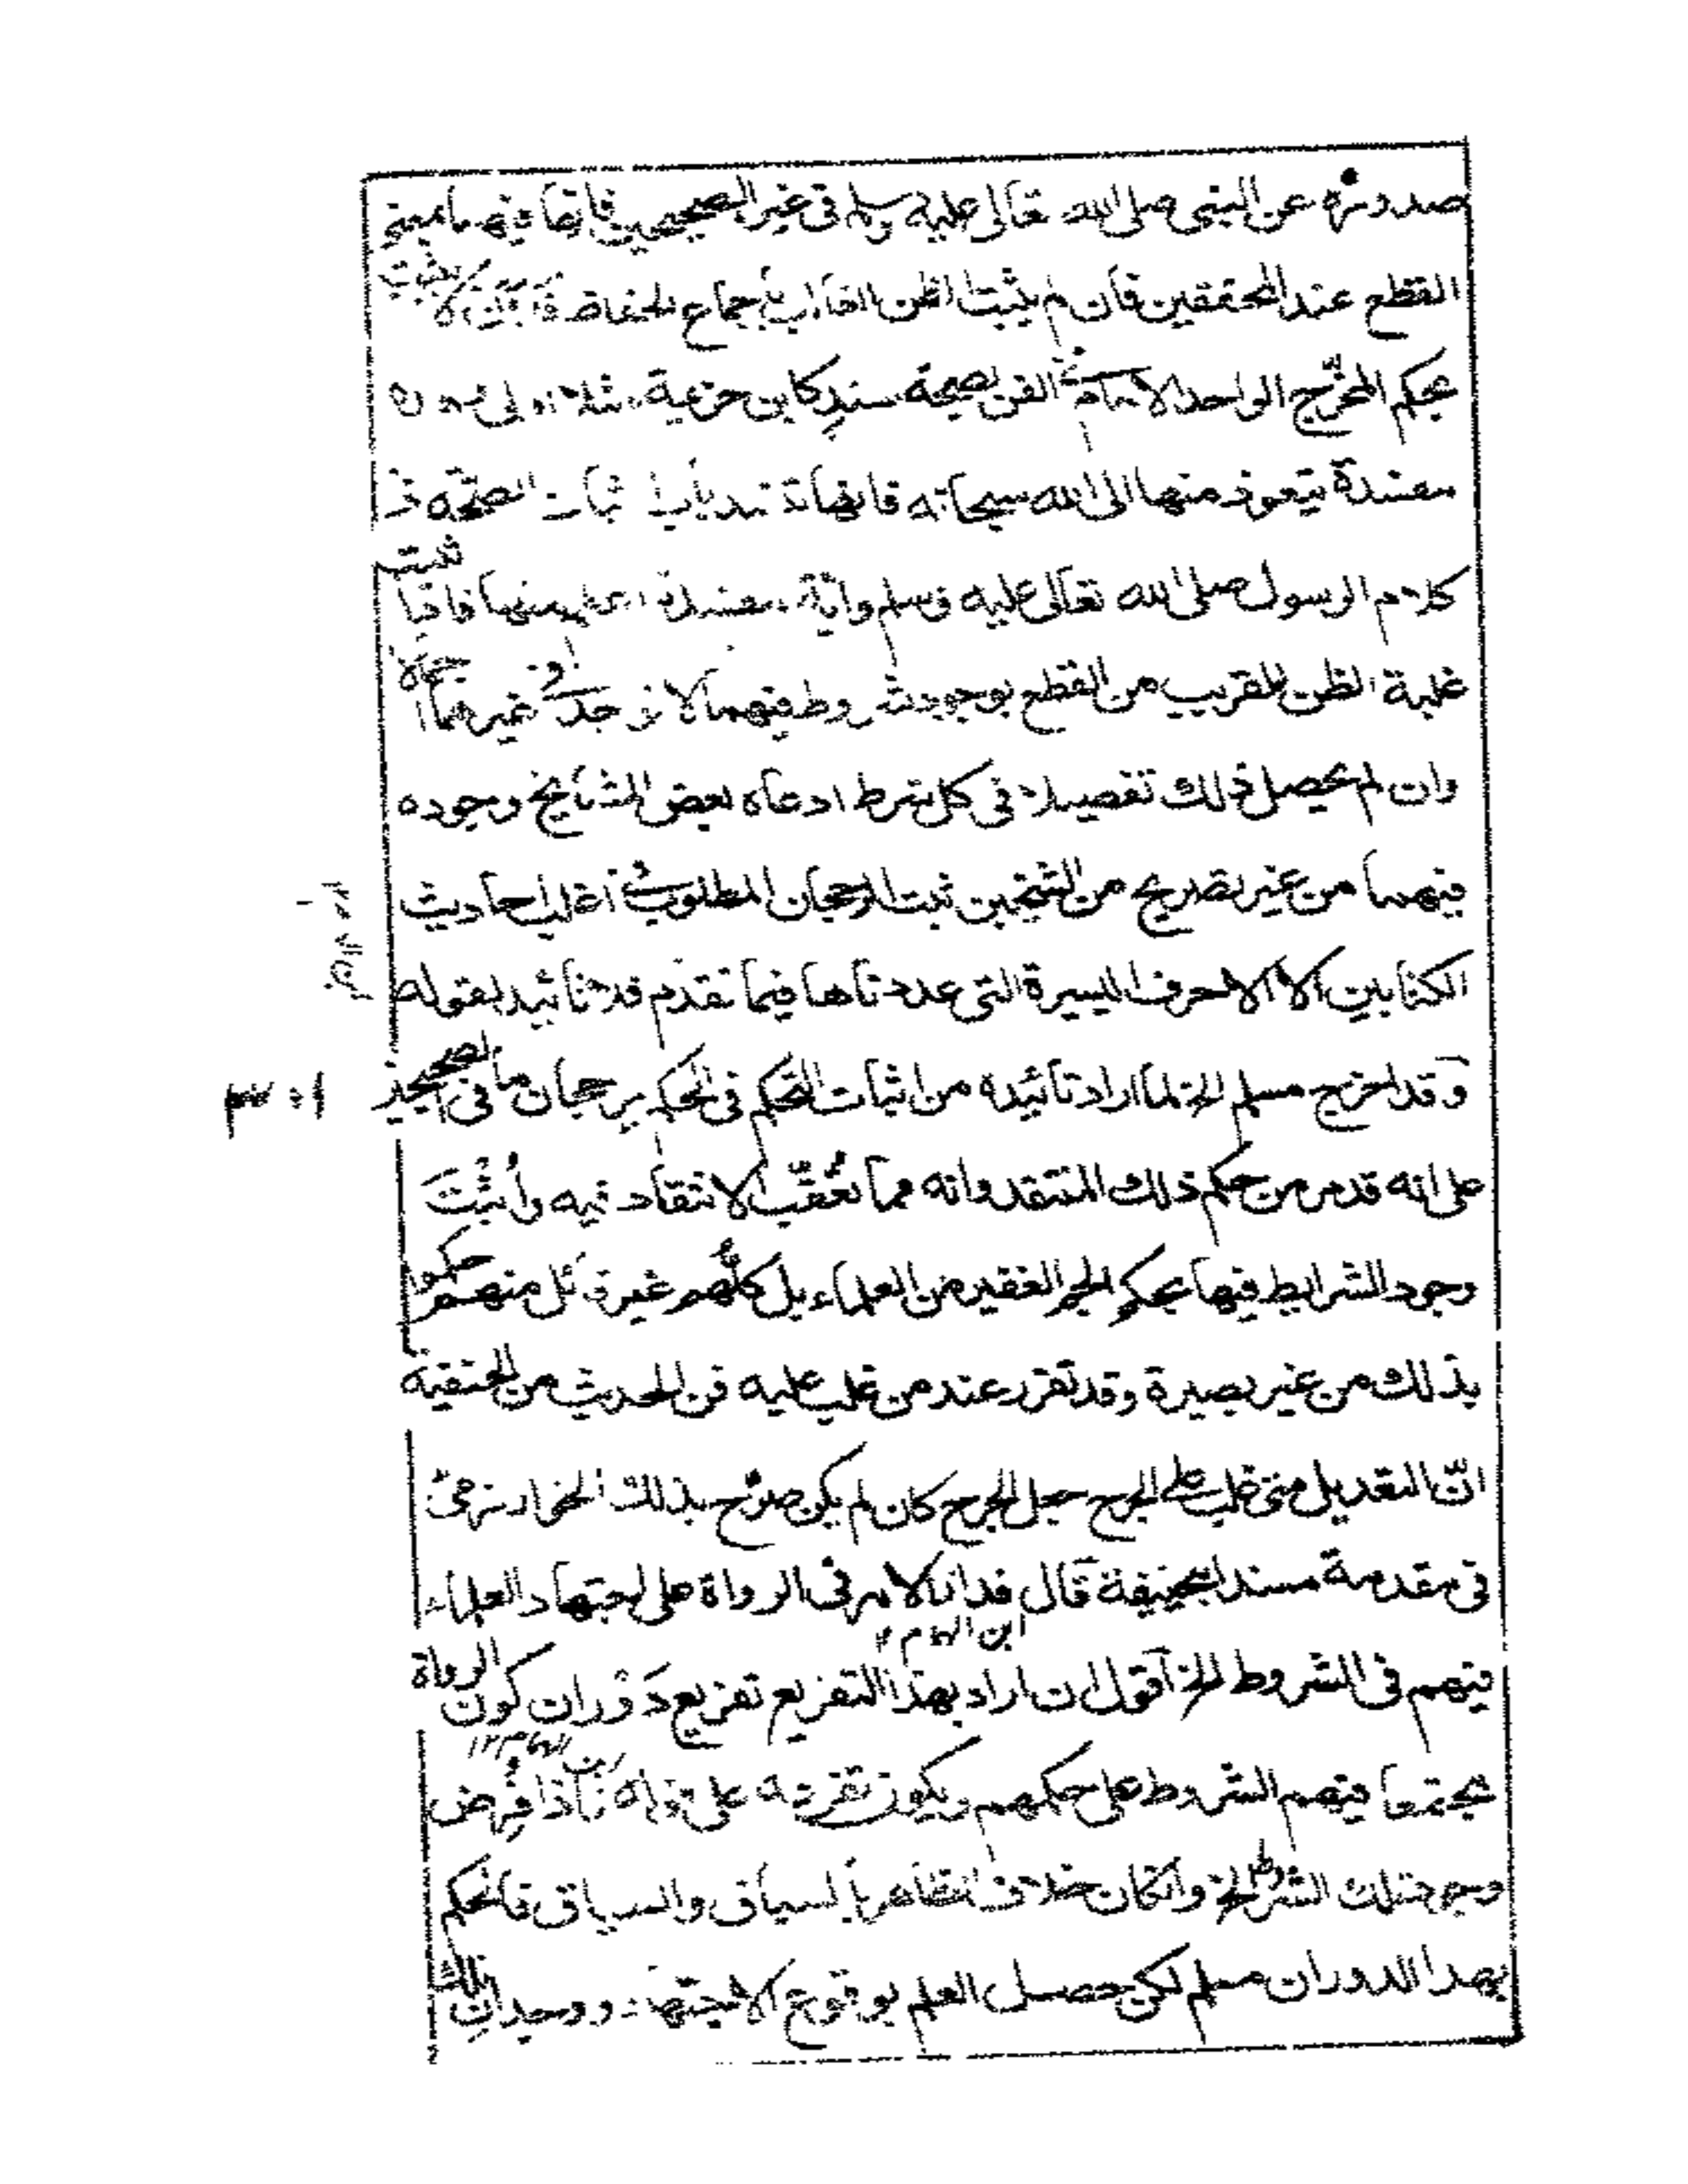 صدوره عن النبي صلى الله تعالى عليه وسلم في غير الصحيحين فانها فيهما معنى
القطع عند المحققين فان لم يثبت الظن الغالب باجماع الحفاظ فبان لا يثبت
بحكم المخرّج الواحد الامام في الفن بصحة سندٍ كابن خزيمة مثلا اولى
مفسدة نتعوذ منها الى الله سبحانه فانها اثبات الصحة في
كلام الرسول صلى الله تعالى عليه وسلم واية مفسدة اعظم منها فاذا ثبت
غلبة الظن المقرب من القطع بوجود شروط فيهما لا توجد في غيرهما اجمالا
وان لم يحصل ذلك تفصيلا في كل شرط ادعاه بعض المشايخ وجوده
فيهما من غير تصريح من الشيخين ثبت الرجحان المطلوب في اغلب احاديث
الكتابين الا الاحرف اليسيرة التي عددناها فيما تقدم فلا تائيد لقوله
وقد اخرج مسلم الخ لما اراد تائيده من اثبات التحكم في الحكم برجحان ما في الصحيحين
٣٠١
على انه قد مر من حكم ذلك المنتقد وانه مما تُعُقِّب الانتقاد فيه وأُثبِتَ
وجود الشرايط فيها بحكم الجم الغفير من العلماء بل كلُّهم غير قائل منهم حكموا
بذلك من غير بصيرة وقد تقرر عند من غلب عليه فن الحديث من الحنفية
انّ التعديل متى غلب على الجرح جعل الجرح كان لم يكن صرّح بذلك الخوارزمي
في مقدمة مسند ابي حنيفة قال فدار الامر في الرواة على اجتهاد العلماء
ابن الهمام
فيهم في الشروط الخ اقول ان اراد بهذا التفريع تفريع دَوَران كون الرواة
مجتمعا فيهم الشروط على حكمهم ويكون تفريعه على قوله فاذا فُرِض
ابن الهمام ١٢
وجود تلك الشروط الخ وان كان خلاف الظاهر بالسباق والسياق فالحكم
بهذا الدوران مسلم لكن حصل العلم بوقوع الاجتهاد ووجدان تلك